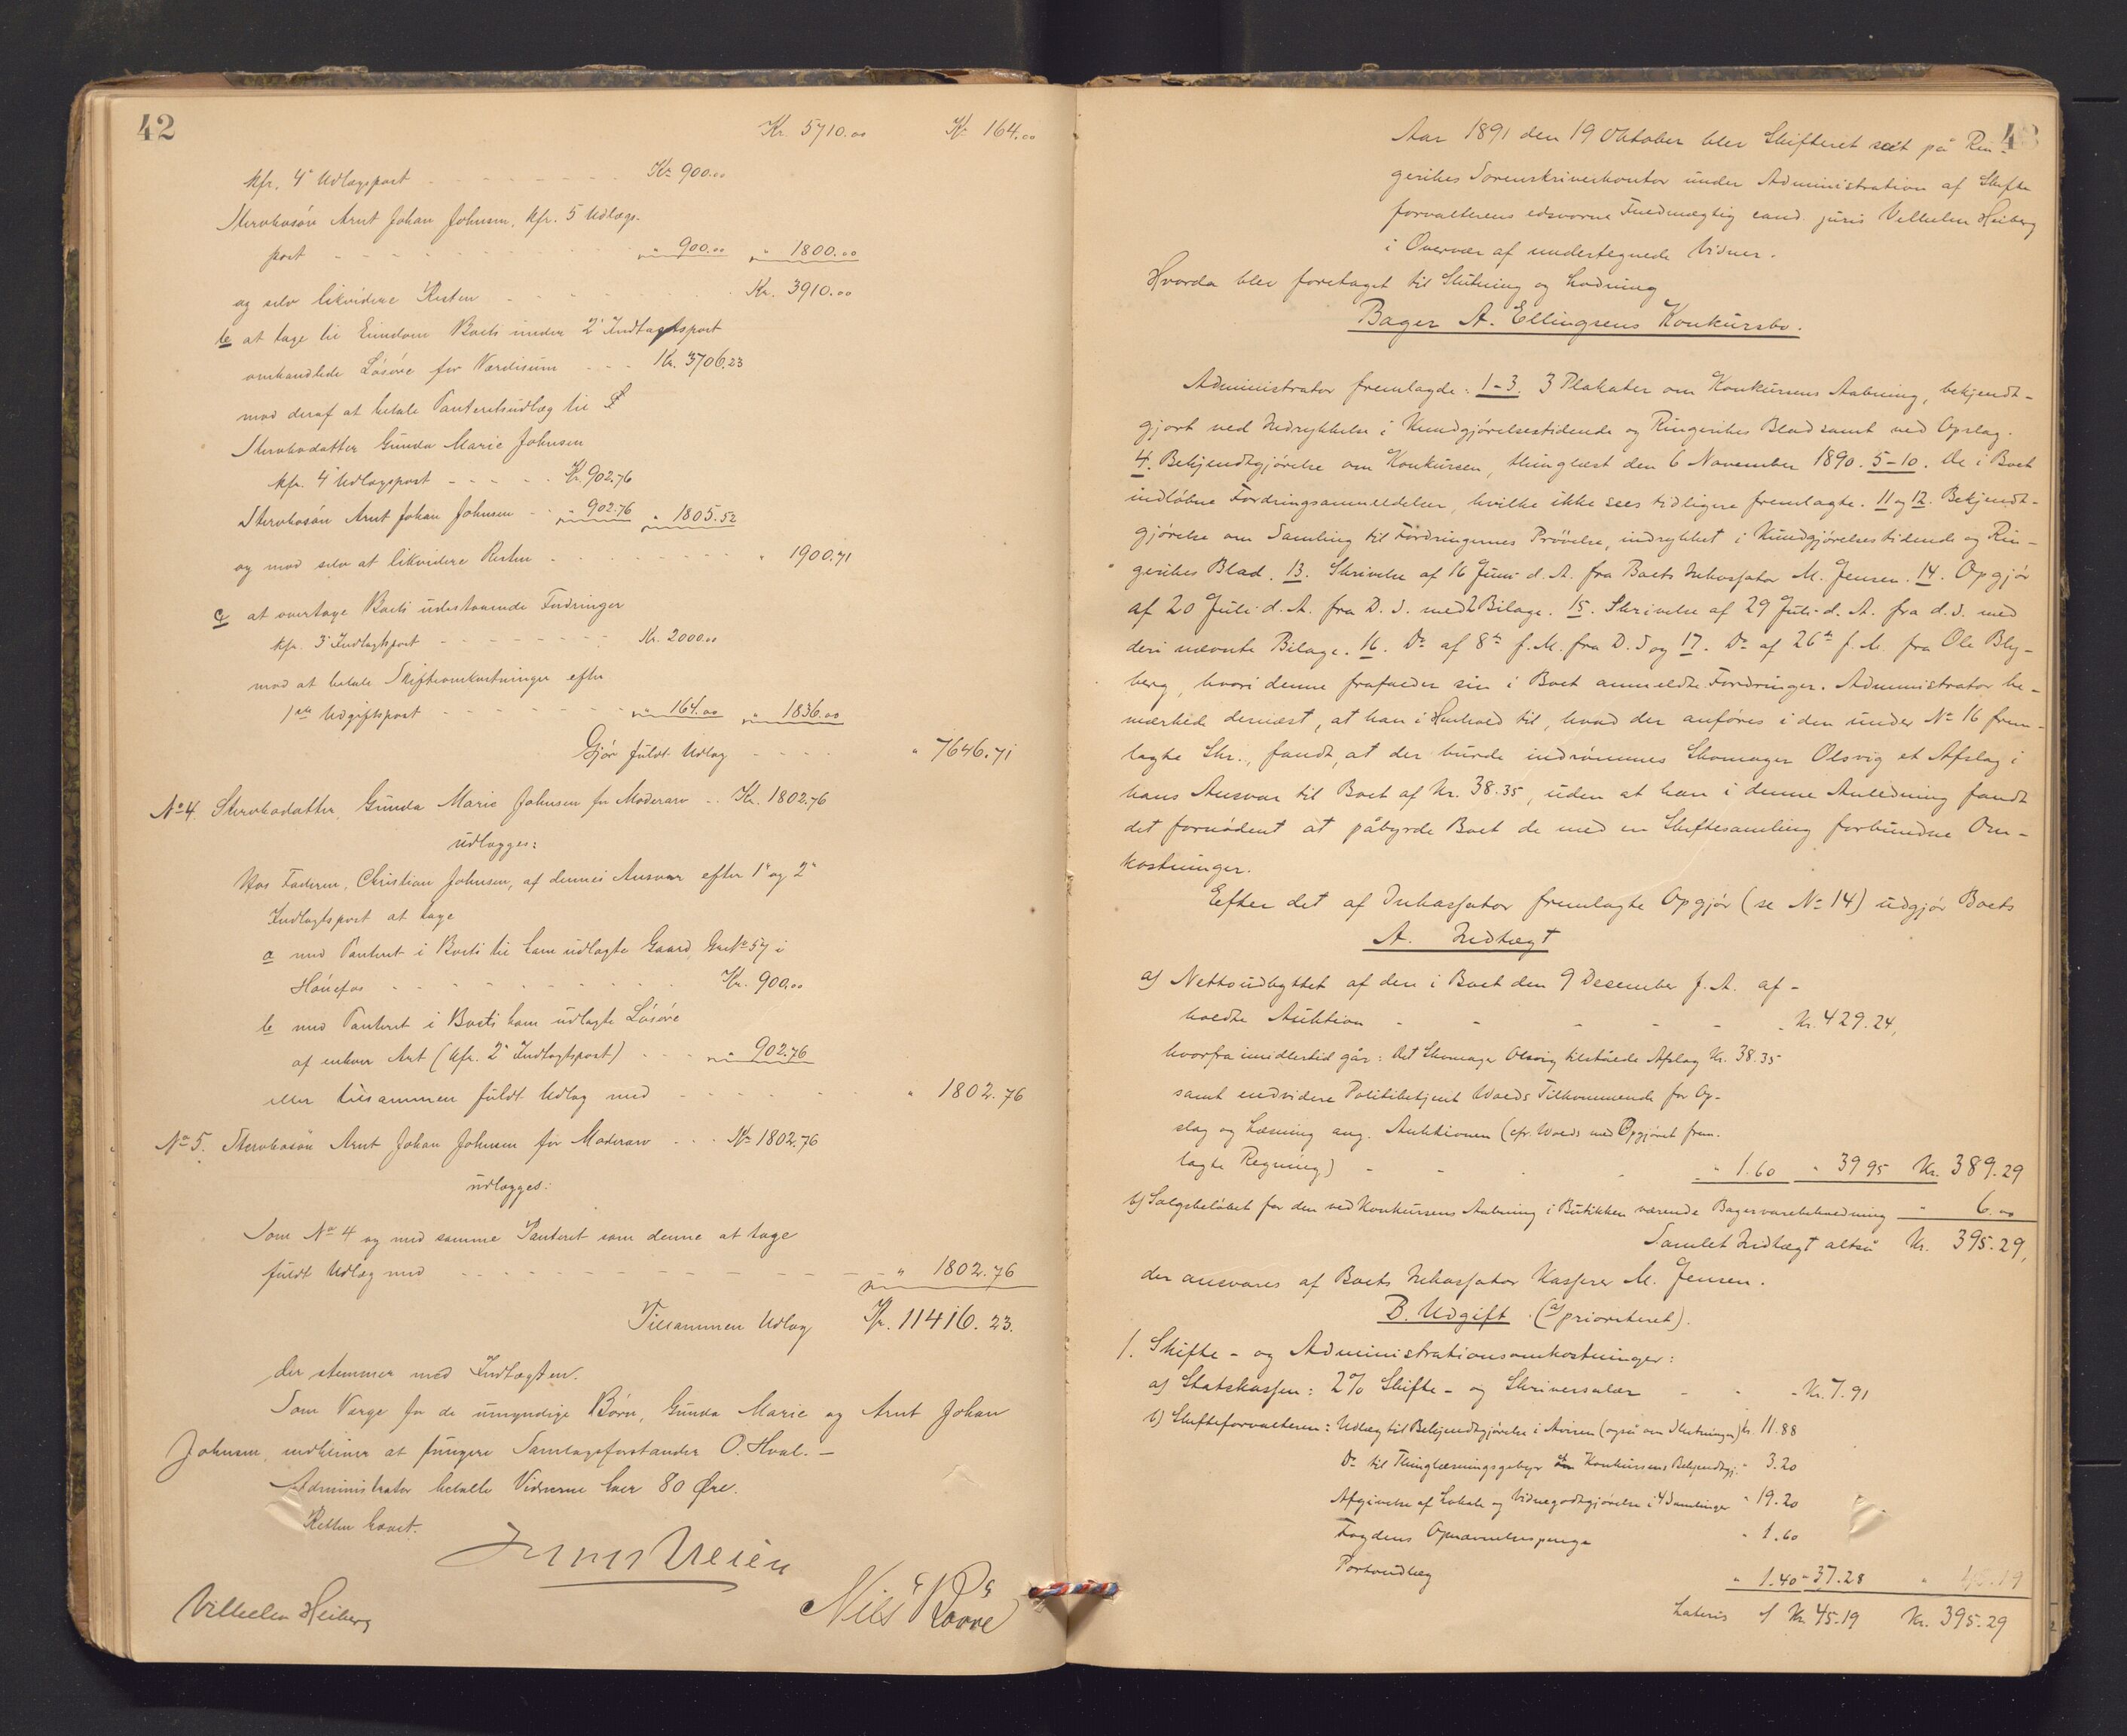 42
Kr. 5710.00 Kr 164.00
kfr. 4' Udlægspost - - - - - - - - Kr 900.00
Stervbosøn Arnt Johan Johnsen, kfr. 5 Udlægs-
post - - - - - - - - " 900.00 " 1800.00
og selv likvidere Resten - - - - - - Kr. 3910.00
b at tage til Eiendom Boets under 2' Indtægtspost
omhandlede Løsøre for Værdisum - - - Kr. 3706.23
mod deraf at betale Panteretsudlæg til
Stervbodatter Gunda Marie Johnsen
kfr. 4' Udlægspost - - - - - Kr. 902.76
Stervbosøn Arnt Johan Johnsen - - " 902.76 " 1805.52
og mod selv at likvidere Resten - - - - - - - - " 1900.71
c at overtage Boets udestaaende Fordringer
kfr. 3' Indtægtspost - - - - - - - - Kr. 2000.00
mod at betale Skifteomkostninger efter
1ste Udgiftspost - - - - - - - " 164.00 " 1836.00
Gjør fuldt Udlæg - - - - " 7646.71
No 4. Stervbodatter, Gunda Marie Johnsen for Moderarv - - Kr. 1802.76
udlægges:
Hos Faderen, Christian Johnsen, af dennes Ansvar efter 1' og 2'
Indtægtspost at tage
a med Panteret i Boets til ham udlagte Gaard, Gr No 57 i
Hønefos - - - - - - - - - - Kr. 900.00
b med Panteret i Boets ham udlagte Løsøre
af enhver Art (kfr. 2' Indtægtspost) - - - " 902.76
eller tilsammen fuldt Udlæg med - - - - - - " 1802.76
No 5. Stervbosøn Arnt Johan Johnsen for Moderarv - - - Kr 1802.76
udlægges:
Som No 4 og med samme Panteret som denne at tage
fuldt Udlæg med - - - - - - - - - - - - " 1802.76
Tilsammen Udlæg Kr. 11416.23.
der stemmer med Indtægten.
Som Værge for de umyndige Børn, Gunda Marie og Arnt Johan
Johnsen, indkluer at fungere Samlagsforstander O. Hval. -
Administrator betalte Vidnerne hver 80 Øre.
Retten hævet.
Vilhelm Heiberg
43
Aar 1891 den 19 Oktober blev Skifteret sat på Rin-
gerikes Sorenskriverkontor under Administration af Skifte
forvalterens edsvorne Fuldmægtig cand. juris Vilhelm Heiberg
i Overvær af undertegnede Vidner.
Hvorda blev foretaget til Slutning og Lodning
Bager A. Ellingsens Konkursbo.
Administrator fremlagde: 1-3. 3 Plakater om Konkursens Aabning, bekjendt-
gjort ved Indrykkelse i Kundgjørelsestidende og Ringerikes Blad samt ved Opslag.
4. Bekjendtgjørelse om Konkursen, thinglæst den 6 November 1890. 5-10. De i Boet
indløbne Fordringsanmeldelser, hvilke ikke sees tidligere fremlagte. 11 og 12. Bekjendt-
gjørelse om Samling til Fordringernes Prøvelse, indrykket i Kundgjørelsestidende og Rin-
gerikes Blad. 13. Skrivelse af 16 Juni d. A. fra Boets Inkassator M. Jensen. 14. Opgjør
af 20 Juli d. A. fra D. S. med 2 Bilage. 15. Skrivelse af 29 Juli d. A. fra d. S. med
deri nævnte Bilage. 16. Do af 8de f. M. fra D. S og 17. Do af 26de f. M. fra Ole Bly-
berg, hvori denne frafalder sin i Boet anmeldte Fordringer. Administrator be-
mærkede dernæst, at han i Henhold til, hvad der anføres i den under No 16 frem-
lagte Skr., fandt, at der burde indrømmes Skomager Olsvig et Afslag i
hans Ansvar til Boet af Kr. 38.35, uden at han i denne Anledning fandt
det fornødent at påbyrde Boet de med en Skiftesamling forbundne Om-
kostninger.
Efter det af Inkassator fremlagte Opgjør (se No 14) udgjør Boets
A. Indtægt
a) Nettoudbyttet af den i Boet den 9 Desember f. A. af-
holdte Auktion - - - - - Kr. 429.24,
hvorfra imidlertid går: Det Skomager Olsvig tilståede Afslag Kr. 38.35
samt endvidere Politibetjent Wolds Tilkommende for Op-
slag og Læsning ang. Auktionen (cfr. Wolds med Opgjøret frem-
lagte Regning) - - - - " 1.60 " 39 95 Kr. 389.29
b) Salgsbeløbet for den ved Konkursens Aabning i Butikken værende Bagervarebeholdning " 6.00
Samlet Indtægt altså Kr. 395.29,
der ansvares af Boets Inkassator Kasserer M. Jensen.
B. Udgift. (a) prioriteret).
1. Skifte- og Administrationsomkostninger:
a) Statskassen: 2% Skifte- og Skriversalær - - - Kr. 7.91
b) Skifteforvalteren: Udlæg til Bekjendtgjørelse i Avisen (også om Slutningen) Kr. 11.88
Do til Thinglæsningsgebyr Konkursens Bekjendtgj. " 3.20
Afgivelse af Lokale og Vidnegodtgjørelse i 4 Samlinger " 19.20
Fogdens Opnævnelsespenge " 1.60
Portoudlæg " 1.40 " 37.28 " 45.19
Lateris Kr 45.19 Kr. 395.29